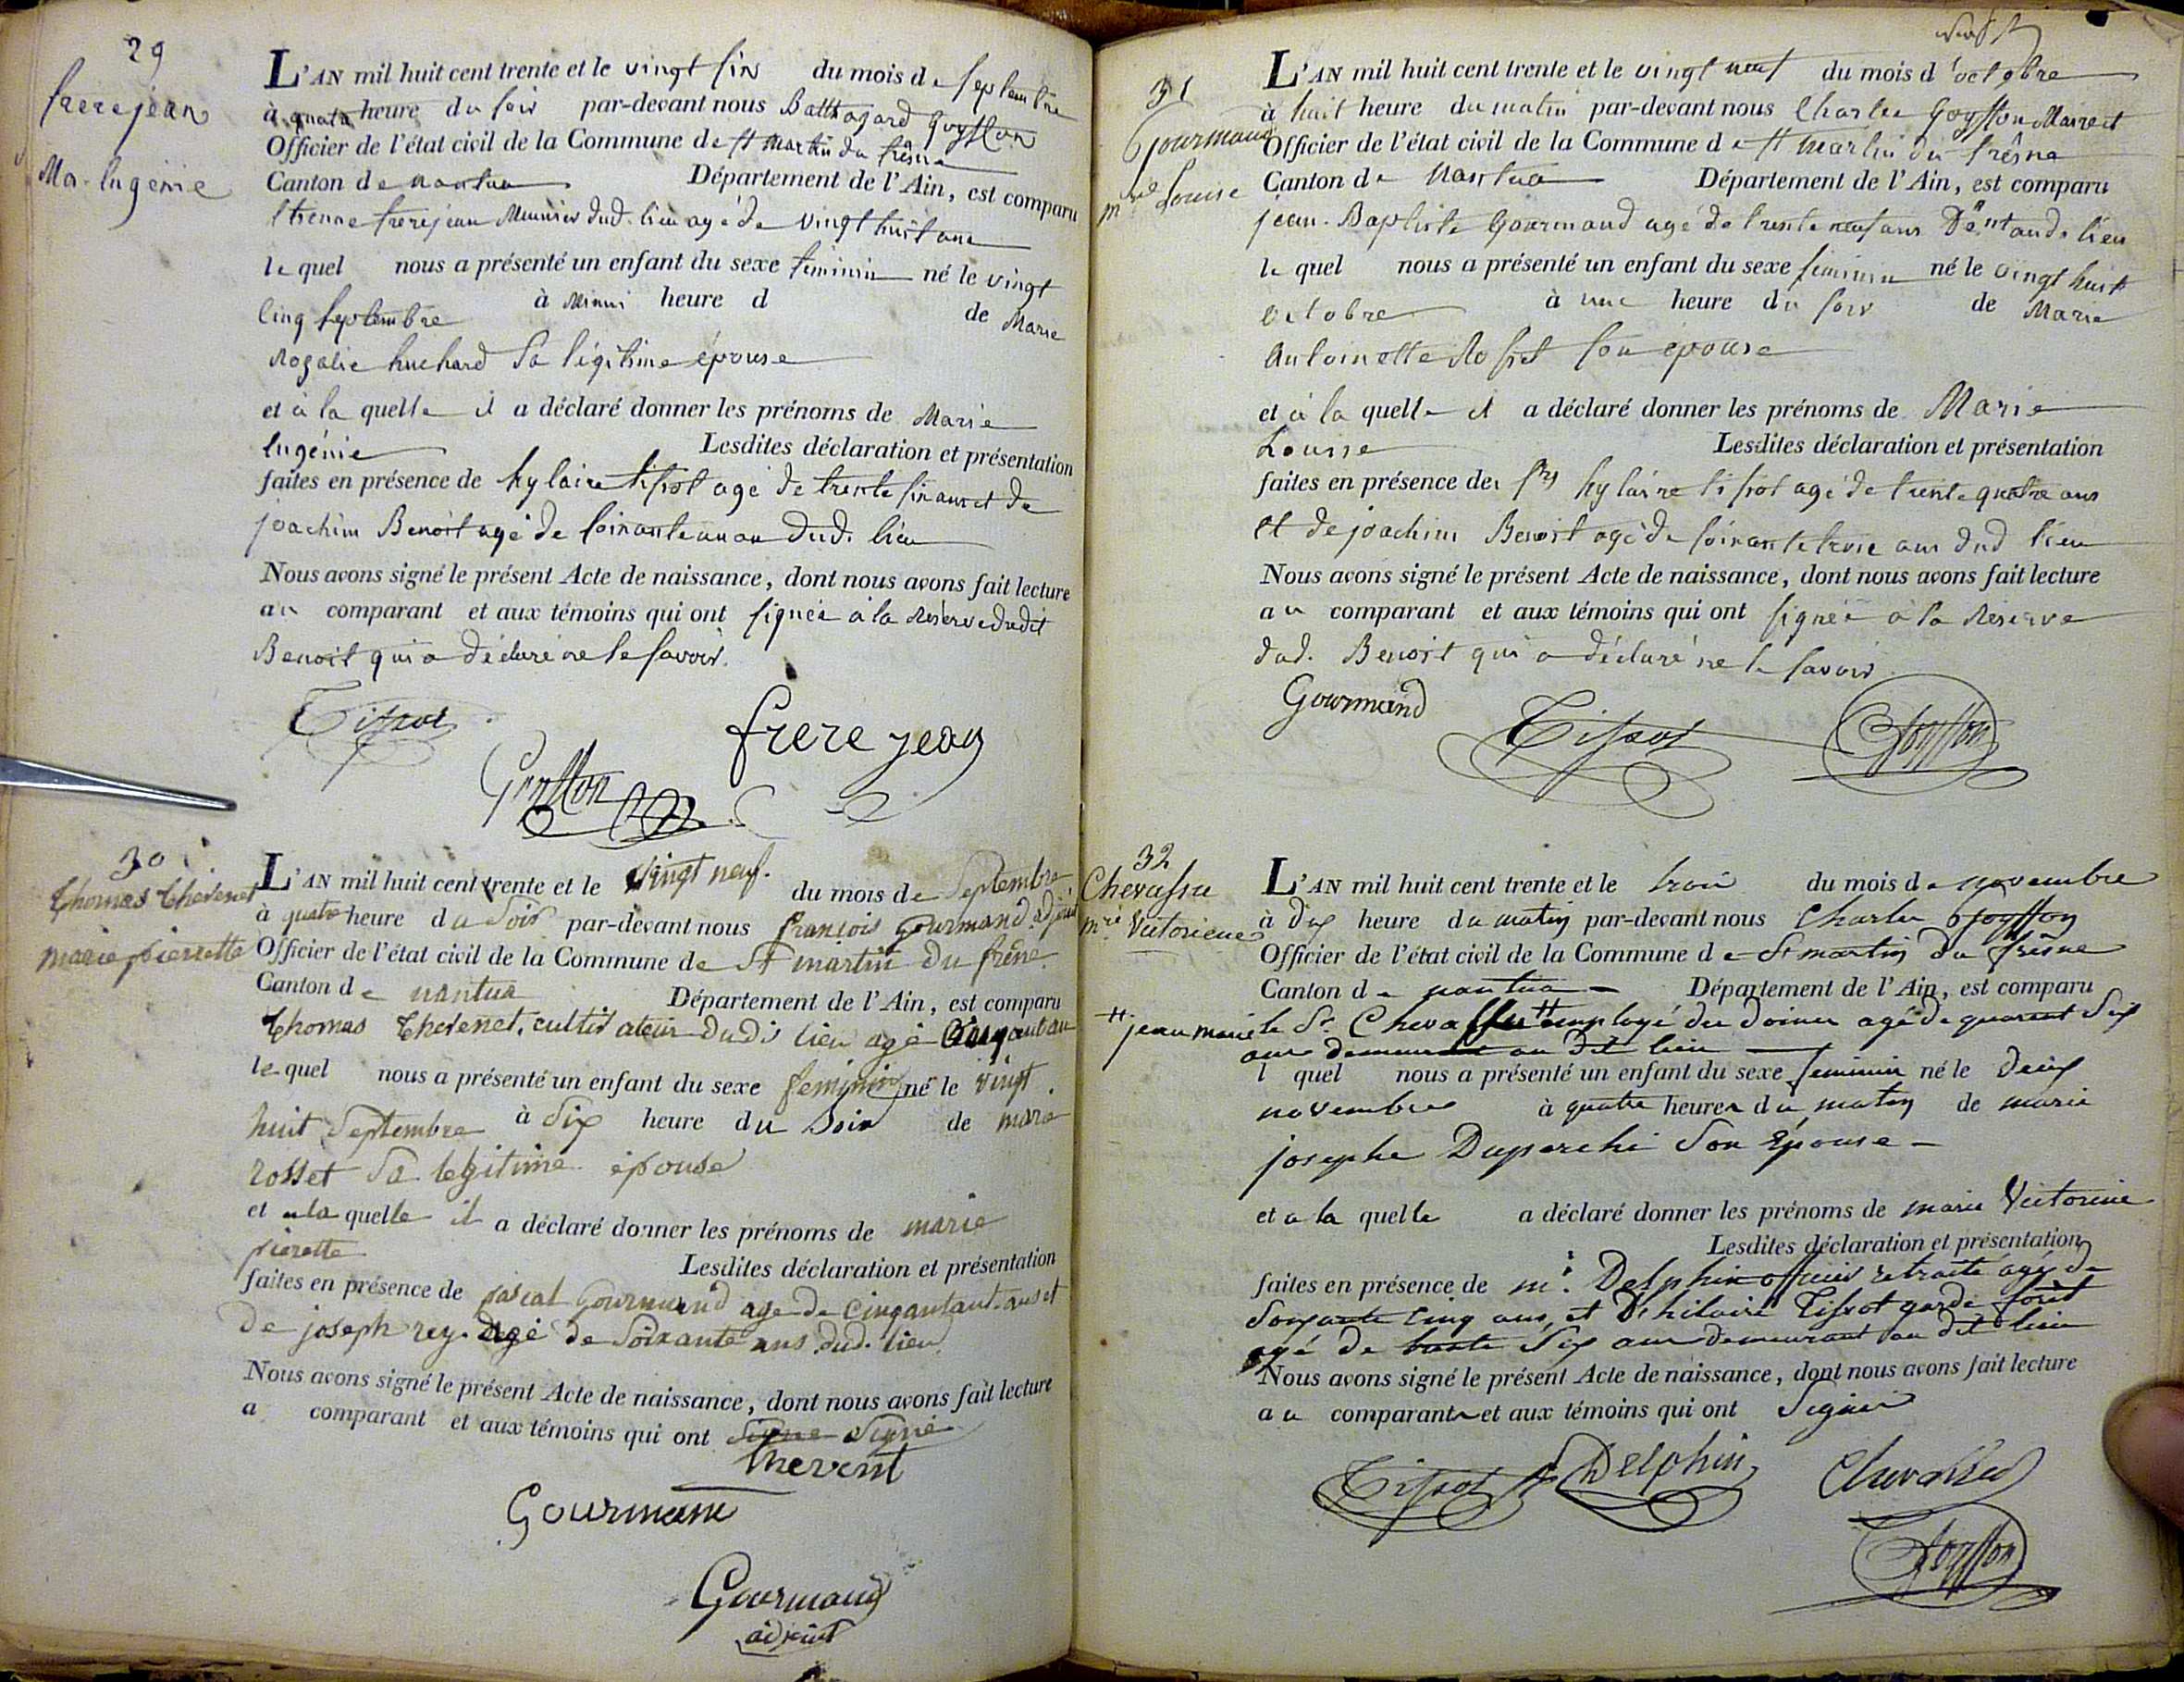 29
frerejean
Ma. Eugenie
L'AN mil huit cent trente et le vingt six du mois de septembre
à quatre heure du soir par-devant nous Balthazard Goyffon
Officier de l'état civil de la Commune de St Martin du frêsne
Canton de nantua Département de l'Ain, est comparu
Etienne frerejean Meunier dud. lieu agé de vingt huit ans
le quel nous a présenté un enfant du sexe feminin né le vingt
cinq septembre à Minui heure d de Marie
Rozalie huchard sa légitime épouse
et à la quelle il a déclaré donner les prénoms de Marie
Eugénie Lesdites déclaration et présentation
faites en présence de hylaire tissot agé de trente six ans et de
joachim Benoit agé de soixante un an dud. lieu
Nous avons signé le présent Acte de naissance, dont nous avons fait lecture
au comparant et aux témoins qui ont signés à la Réserve dudit
Benoit qui a déclaré ne le savoir.
Tissot
frere jean
Goyffon
30
Thomas Thevenet
marie pierrette
L'AN mil huit cent trente et le vingt neuf. du mois de Septembre
à quatre heure du Soir par-devant nous françois gourmand adjoint
Officier de l'état civil de la Commune de St martin du frêne
Canton de nantua Département de l'Ain, est comparu
Thomas Thevenet, cultivateur dudi lieu agé
le quel nous a présenté un enfant du sexe feminin né le vingt
huit Septembre à Six heure du Soir de marie
rosset Sa legitime épouse
et a la quelle il a déclaré donner les prénoms de marie
pierette Lesdites déclaration et présentation
faites en présence de pascal gourmand age de cinqantaut. ans et
De joseph rey. agé de Soixante ans dud. lieu
Nous avons signé le présent Acte de naissance, dont nous avons fait lecture
a comparant et aux témoins qui ont Signe Signé
thevent
Gourmam
Gourmand
adjoint
31
Gourmand
mrie Louise
L'AN mil huit cent trente et le vingt neuf du mois d'octobre
à huit heure du matin par-devant nous Charles Goyffon Maire et
Officier de l'état civil de la Commune de St Martin du frêsne
Canton de Nantua Département de l'Ain, est comparu
jean-Baptiste Gourmand agé de trente neuf ans Demt aud. lieu
le quel nous a présenté un enfant du sexe feminin né le vingt huit
octobre à une heure du soir de Marie
Antoinette Rosset son épouse
et à la quelle il a déclaré donner les prénoms de Marie
Louise Lesdites déclaration et présentation
faites en présence des hylaire tissot agé de trente quatre ans
et de joachim Benoit agé de soixante trois ans dud lieu
Nous avons signé le présent Acte de naissance, dont nous avons fait lecture
au comparant et aux témoins qui ont signés à la Réserve
dud. Benoit qui a déclaré ne le savoir
Gourmand
Tissot
Goyffon
32
Chevassu
mrie Victorine
L'AN mil huit cent trente et le trois du mois de novembre
à dix heure du matin par-devant nous Charles Goyffon
Officier de l'état civil de la Commune de St martin du frêsne
Canton de nantua Département de l'Ain, est comparu
jean marie le Sr. Chevassu employé des Doines agé de quarant Six
ans demeurant au dit lieu
l quel nous a présenté un enfant du sexe feminin né le deux
novembre à quatre heures du matin de marie
josephe Duparchi Son Epouse
et a la quelle a déclaré donner les prénoms de marie Victorine
Lesdites déclaration et présentation
faites en présence de mr. Delphin officier retraité agé de
Soixante cinq ans, et hilaire Tissot garde forêt
agé de trente Six ans demeurant au dit lieu
Nous avons signé le présent Acte de naissance, dont nous avons fait lecture
au comparant et aux témoins qui ont Signés
Tissot
Delphin
Chevassu
Goyffon